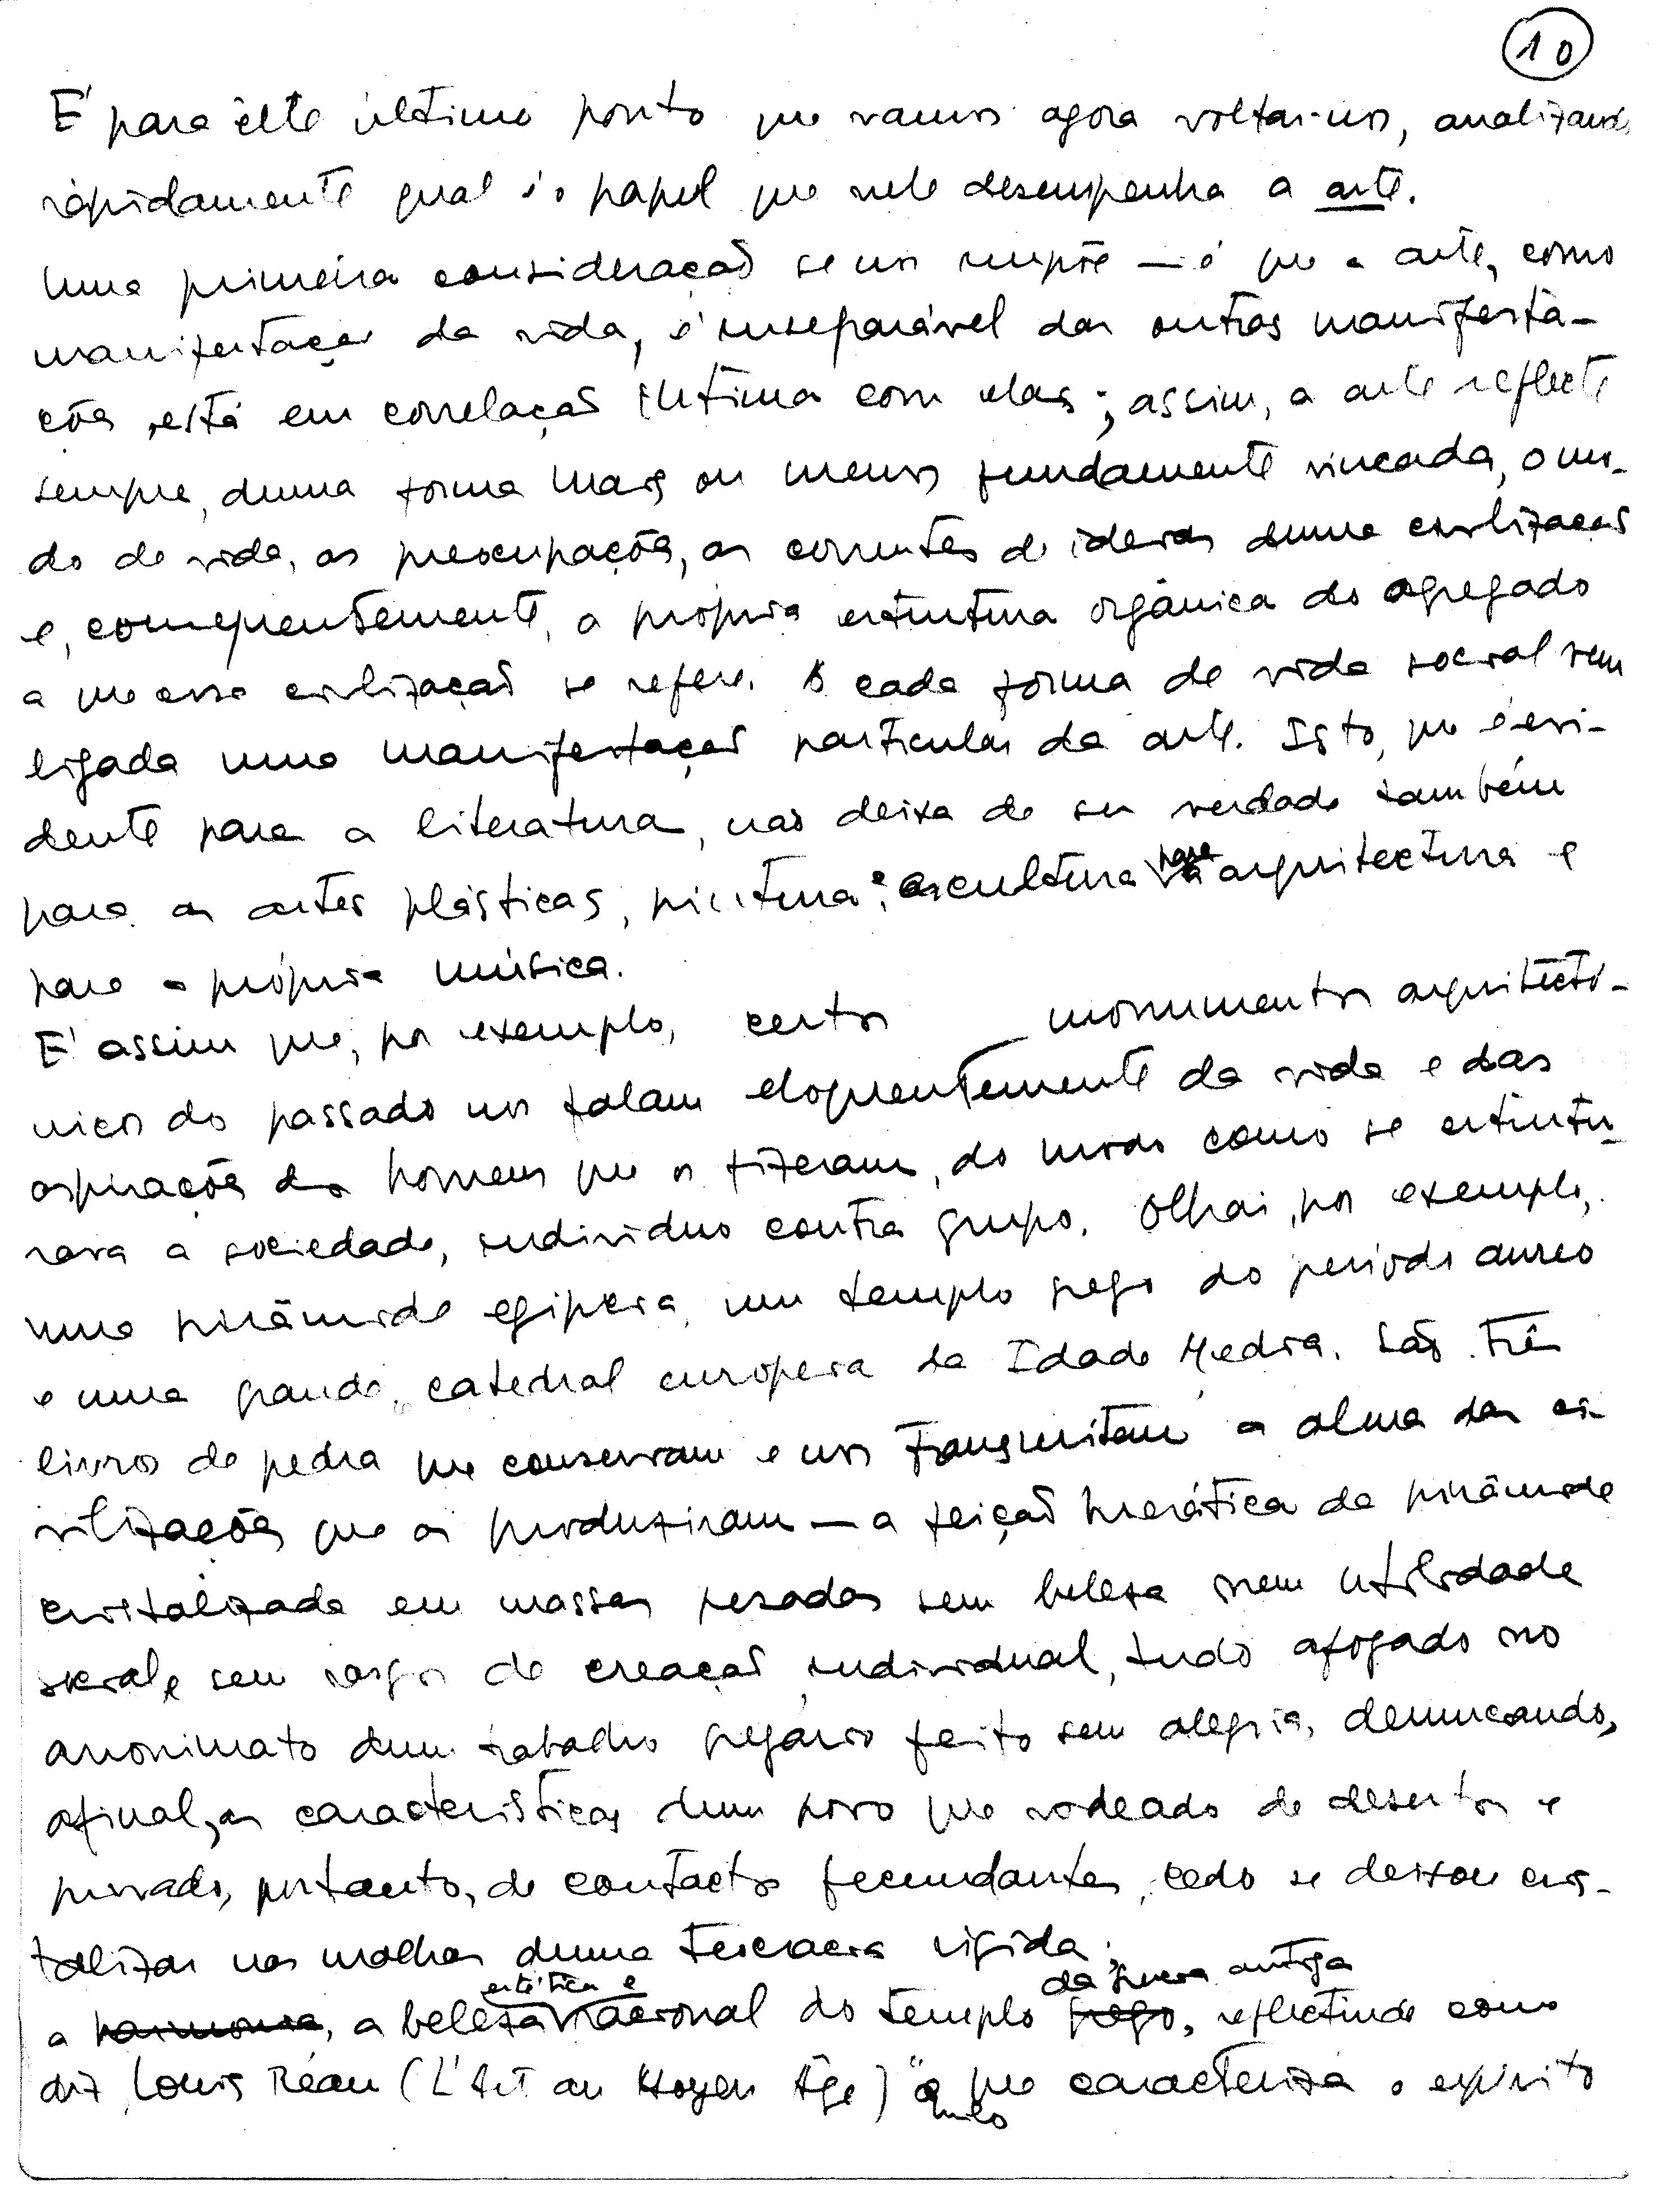 10
E' para êste último ponto que vamos agora voltar-nos, analizando
ràpidamente qual é o papel que nele desempenha a arte.
Uma primeira consideração se nos impõe — é que a arte, como
manifestação da vida, é inseparável das outras manifesta-
ções, está em correlação íntima com elas; assim, a arte reflecte
sempre, duma forma mais ou menos fundamente vincada, o mo-
do de vida, as preocupações, as correntes de ideias duma civilização
e, consequentemente, a própria estrutura orgânica do agregado
a que essa civilização se refere. A cada forma de vida social vem
ligada uma manifestação particular da arte. Isto, que é evi-
dente para a literatura, não deixa de ser verdade também
para as artes plásticas, pintura e escultura, para a arquitectura e
para a própria música.
E' assim que, por exemplo, certos monumentos arquitectó-
nicos do passado nos falam eloquentemente da vida e das
aspirações dos homens que os fizeram, do modo como se estrutu-
rava a sociedade, indivíduo contra grupo. Olhai, por exemplo,
uma pirâmide egípcia, um templo grego do período aureo
e uma grande catedral europeia da Idade Media. São três
livros de pedra que conservam e nos transmitem a alma das ci-
vilizações que os produziram — a feição hierática da pirâmide
cristalizada em massas pesadas sem beleza nem utilidade
social, sem rasgos de creação individual, tudo afogado no
anonimato dum trabalho gregário feito sem alegria, denunciando,
afinal, as características dum povo que rodeado de desertos e
privado, portanto, de contactos fecundantes, cedo se deixou cris-
talizar nas malhas duma teocracia rígida;
a harmonia, a beleza estética e racional do templo grego da Grecia antiga, reflectindo como
diz Louis Réau (L'Art au Moyen Âge) "aquilo que caracteriza o espírito